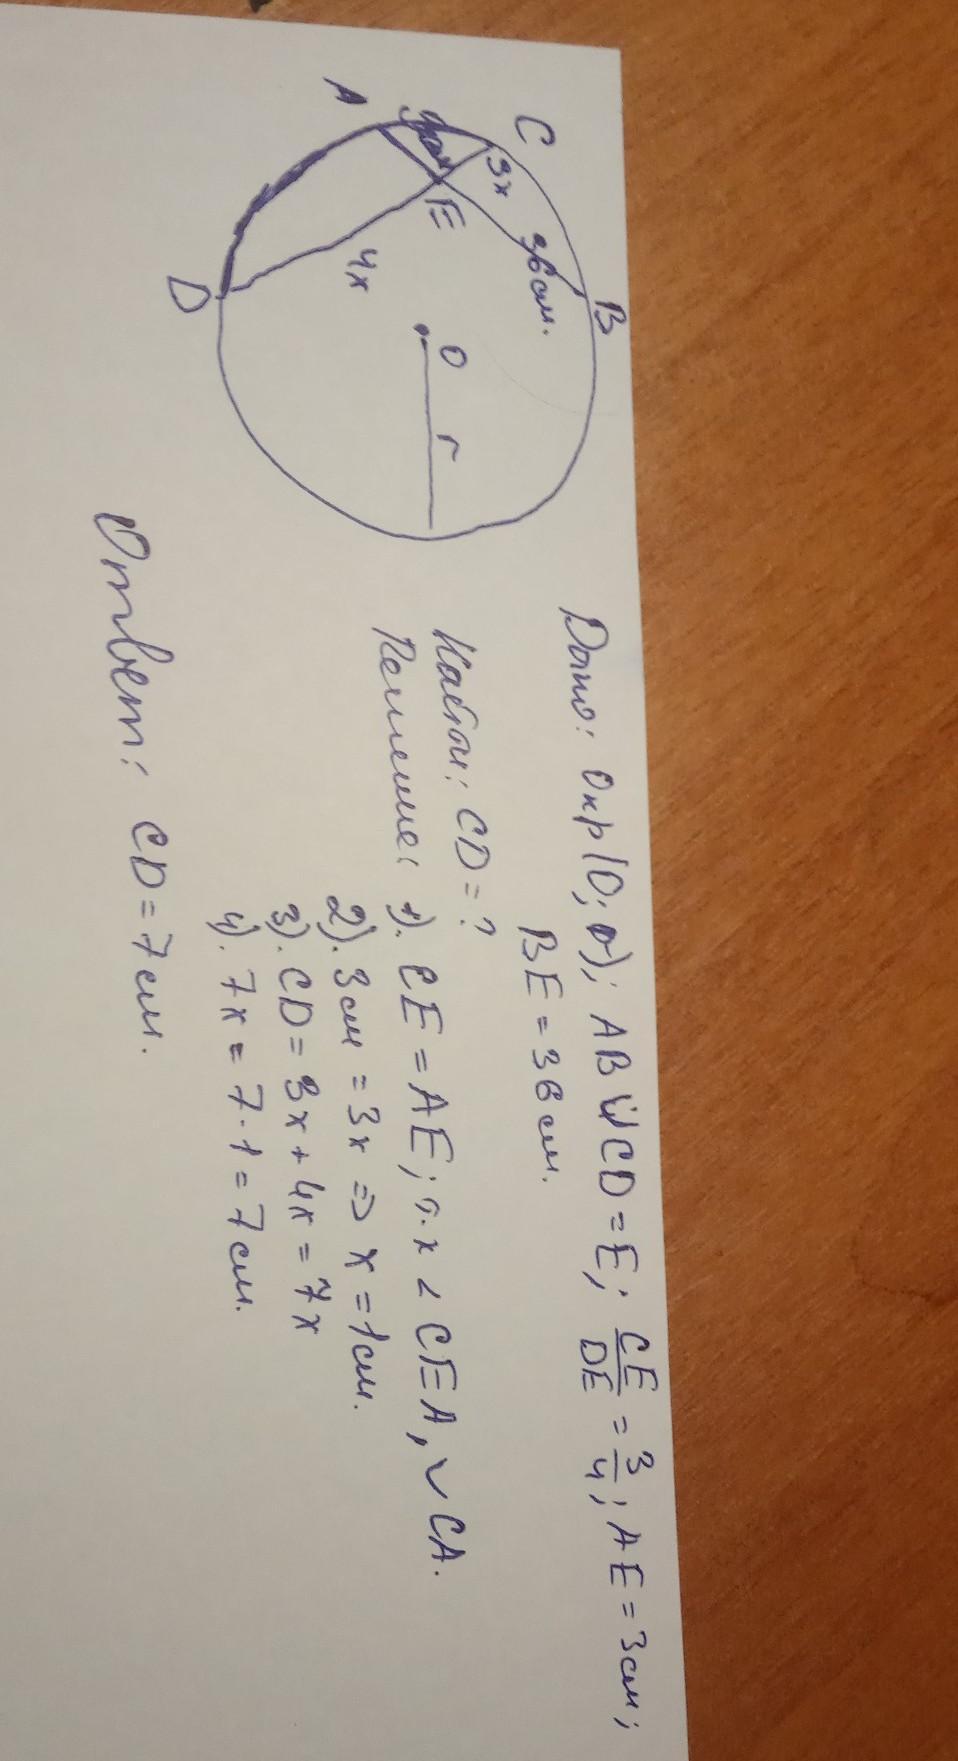 C
B
A
3x
36 см.
E
4x
O
r
D
Дано: Окр(O; r); AB ∪ CD = E; CE/DE = 3/4; AE = 3см;
BE = 36 см.
Найти: CD = ?
Решение: 1). CE = AE; т.к < CEA, ◡ CA.
2). 3см = 3x => x = 1см.
3). CD = 3x + 4x = 7x
4). 7x = 7·1 = 7см.
Ответ: CD = 7см.